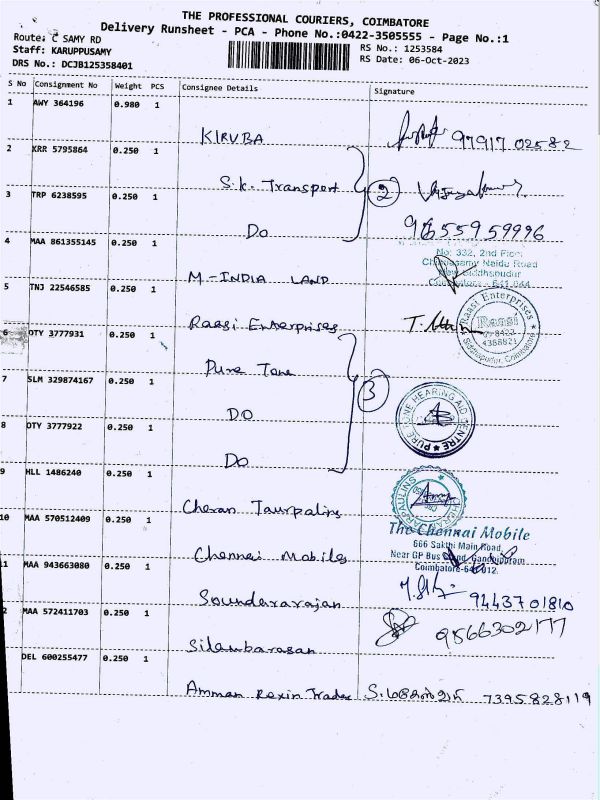 THE PROFESSIONAL COURIERS, COIMBATORE
Delivery Runsheet - PCA - Phone No.:0422-3505555 - Page No.:1
Route: C SAMY RD
RS No.: 1253584
Staff: KARUPPUSAMY
RS Date: 06-Oct-2023
DRS No.: DCJB125358401
S No Consignment No Weight PCS Consignee Details Signature
1 AWY 364196 0.980 1
KIRUBA 97917 02582
2 KRR 5795864 0.250 1
S.K. Transport 2
3 TRP 6238595 0.250 1
Do 9655959996
4 MAA 861355145 0.250 1
No: 332, 2nd Floor
Naidu Road
New Siddhapudur
Coimbatore - 641 044
M-INDIA LAND
5 TNJ 22546585 0.250 1
Raasi Enterprises
Raasi Enterprises
Raasi
4388821
Siddhapudur, Coimbatore
6 OTY 3777931 0.250 1
Pure Tone
7 SLM 329874167 0.250 1
3
DO
PURE TONE HEARING AID CENTRE
8 OTY 3777922 0.250 1
Do
9 HLL 1486240 0.250 1
Cheran Taurpalins
TARPAULINS
10 MAA 570512409 0.250 1
The Chennai Mobile
666 Sakthi Main Road,
Near GP Bus Stand, Gandhipuram
Coimbatore-641 012.
Chennai Mobiles
11 MAA 943663080 0.250 1
Soundararajan 9443701810
2 MAA 572411703 0.250 1
Silambarasan 9566302177
DEL 600255477 0.250 1
Amman Rexin Trader 7395828119